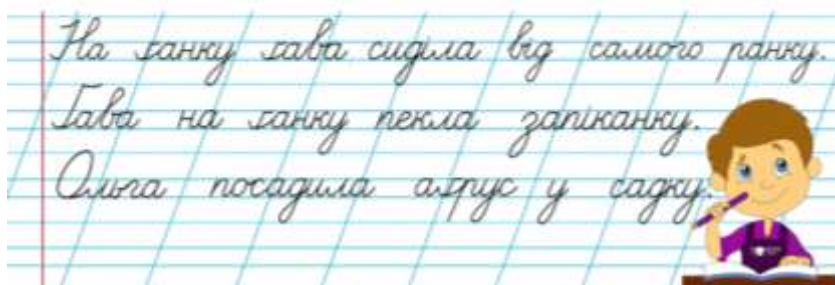 На ґанку ґава сиділа від самого ранку.
Ґава на ґанку пекла запіканку.
Ольга посадила аґрус у садку.